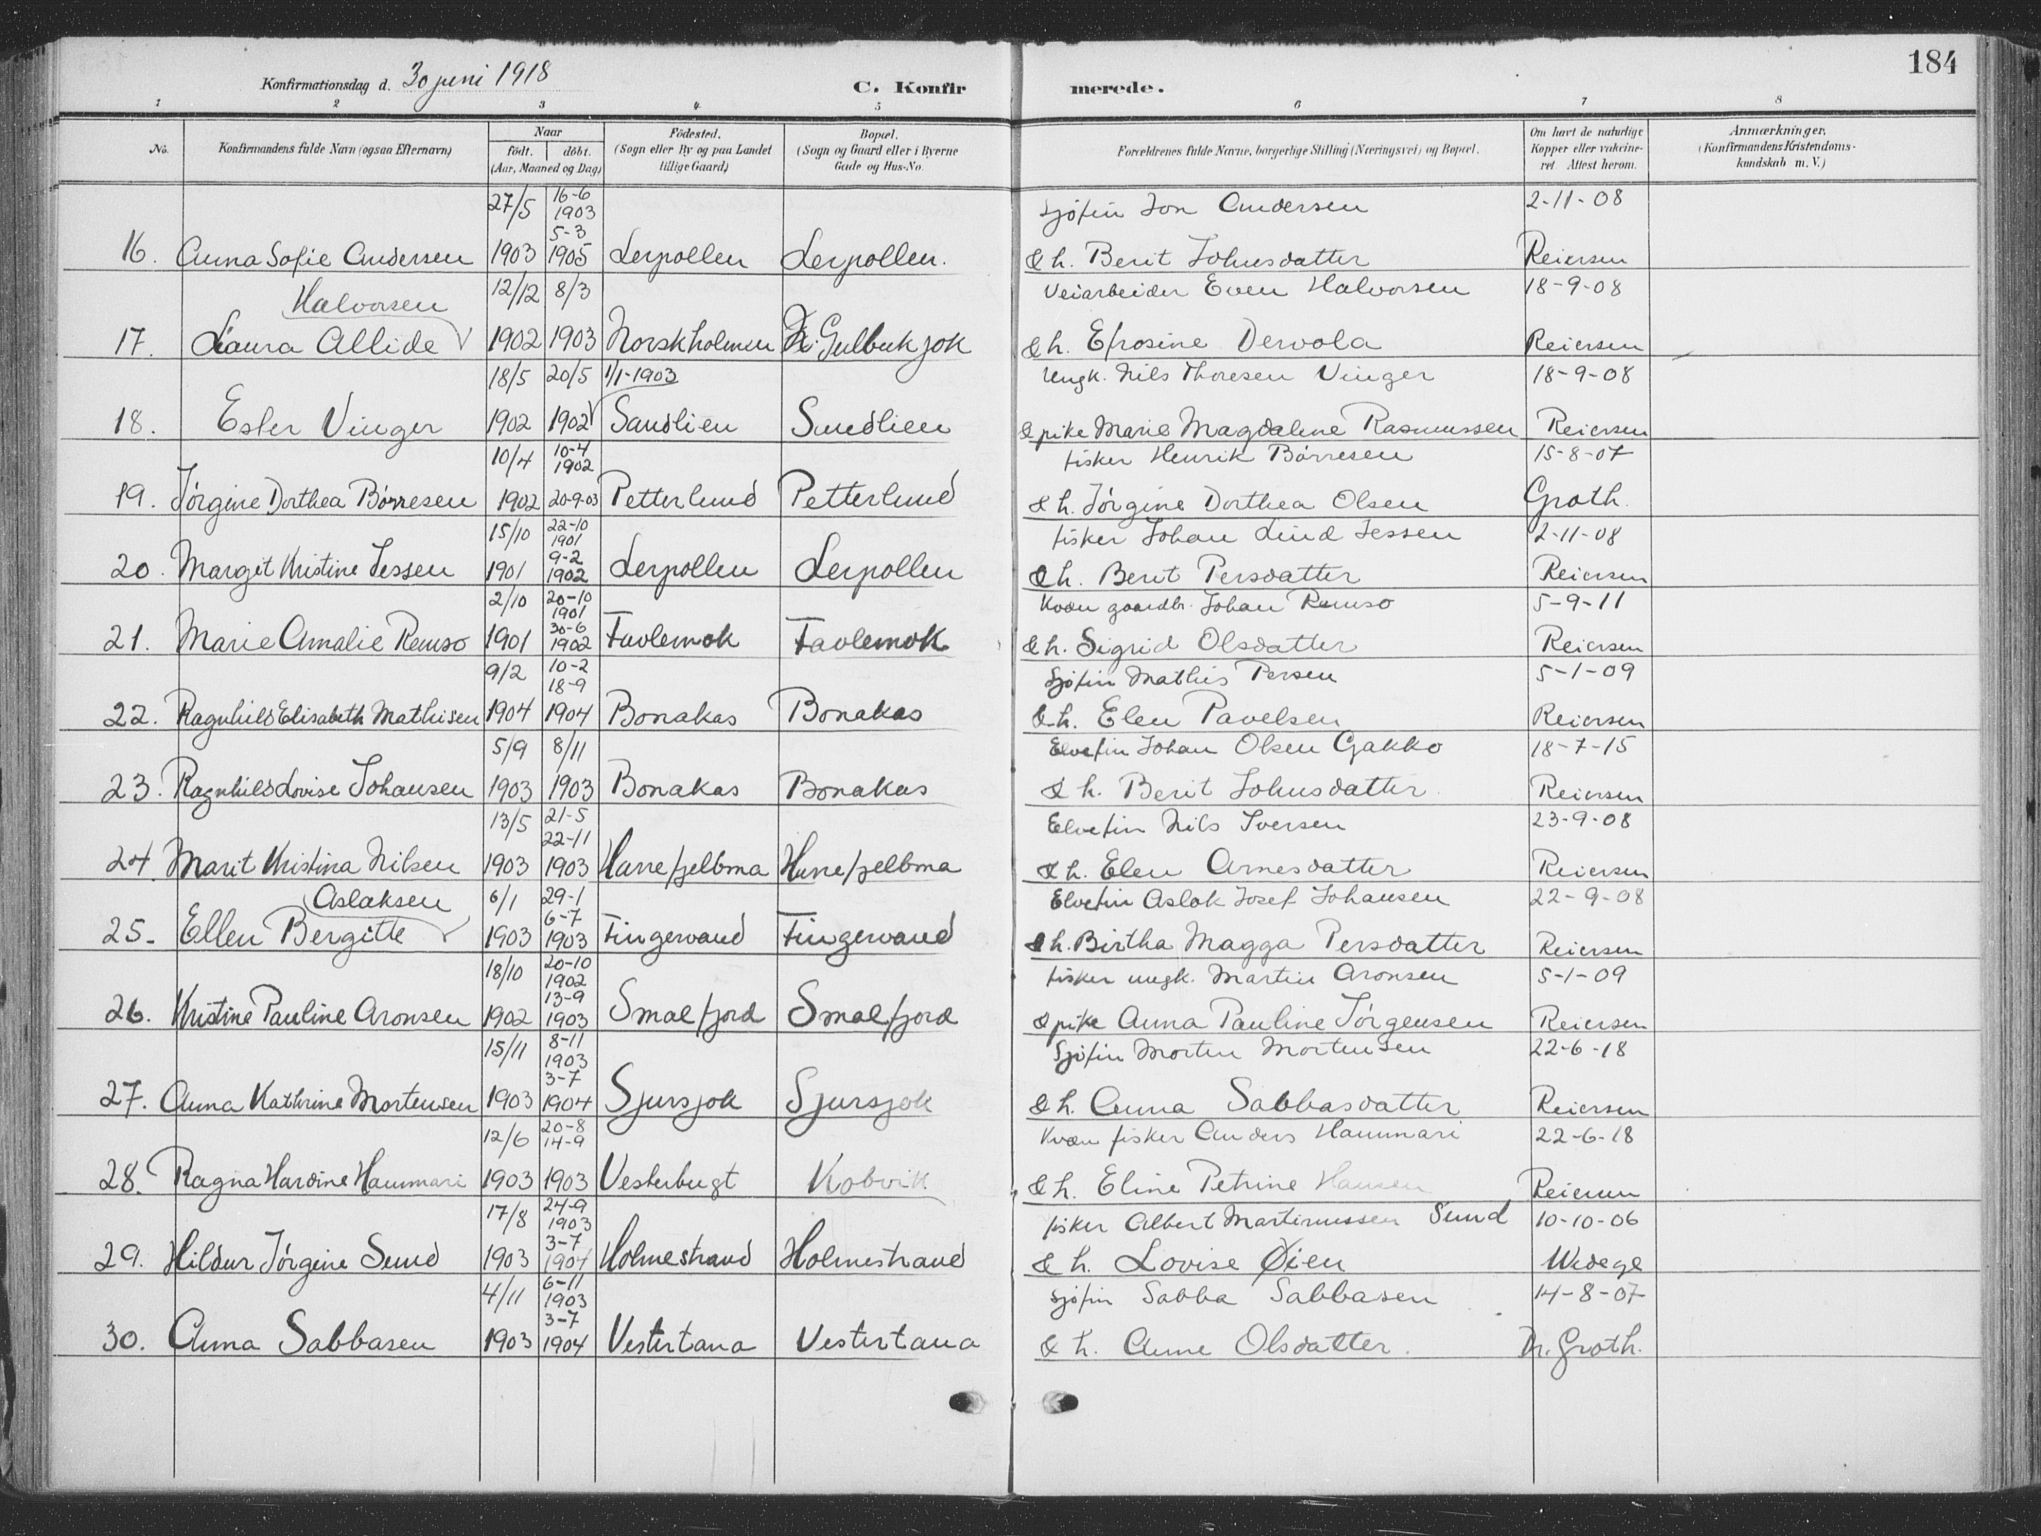 184
Konfirmationsdag d. 30 juni 1918
C. Konfirmerede.
1 2 3 4 5 6 7 8
No. Konfirmandens fulde Navn (ogsaa Efternavn) Naar født. døbt. (Aar, Maaned og Dag) Födested. (Sogn eller By og paa Landet tillige Gaard) Bopæl. (Sogn og Gaard eller i Byerne Gade og Hus-No. Forældrenes fulde Navne, borgerlige Stilling (Næringsvei) og Bopæl. Om havt de naturlige Kopper eller vakcineret Attest herom. Anmærkninger. (Konfirmandens Kristendomskundskab m. V.)
27/5 16-6 1903 Sjøfin Jon Andersen 2-11-08
16. Anna Sofie Andersen 1903 5-3 1905 Lerpollen Lerpollen. & h. Berit Johnsdatter Reiersen
Halvorsen 12/12 8/3 Veiarbeider Even Halvorsen 18-9-08
17. Laura Allide 1902 1903 Norskholmen Gulbukjok & h. Efrosine Dervola Reiersen
18/5 20/5 1/1-1903 Ungk. Nils Thoresen Vinger 18-9-08
18. Ester Vinger 1902 1902 Sandlien Sandlien & pike Marie Magdalene Rasmussen Reiersen
10/4 10-4 1902 fisker Henrik Børresen 15-8-07
19. Jørgine Dorthea Børresen 1902 20-9-03 Petterlund Petterlund & h. Jørgine Dorthea Olsen Groth.
15/10 22-10 1901 fisker Johan Lind Jessen 2-11-08
20. Margit Kristine Jessen 1901 9-2 1902 Lerpollen Lerpollen & h. Berit Persdatter Reiersen
2/10 20-10 1901 Kvæn gaardbr. Johan Remso 5-9-11
21. Marie Amalie Remso 1901 30-6 1902 Favlemok Favlemok & h. Sigrid Olsdatter Reiersen
9/2 10-2 18-9 Sjøfin Mathis Persen 5-1-09
22. Ragnhild Elisabeth Mathisen 1904 1904 Bonakas Bonakas & h. Elen Pavelsen Reiersen
5/9 8/11 Elvefin Johan Olsen Gakko 18-7-15
23. Ragnhild Lovise Johansen 1903 1903 Bonakas Bonakas & h. Berit Johnsdatter Reiersen
13/5 21-5 22-11 Elvefin Nils Iversen 23-9-08
24. Marit Kristina Nilsen 1903 1903 Harrefjelbma Harrefjelbma & h. Elen Arnesdatter Reiersen
Aslaksen 6/1 29-1 Elvefin Aslak Josef Johansen 22-9-08
25. Ellen Bergitte 1903 6-7 1903 Fingervand Fingervand & h. Birtha Magga Persdatter Reiersen
18/10 20-10 1902 fisker ungk. Martin Aronsen 5-1-09
26. Kristine Pauline Aronsen 1902 13-9 1903 Smalfjord Smalfjord & pike Anna Pauline Jørgensen Reiersen
15/11 8-11 1903 Sjøfin Morten Mortensen 22-6-18
27. Anna Kathrine Mortensen 1903 3-7 1904 Sjursjok Sjursjok & h. Anna Sabbasdatter Reiersen
12/6 20-8 14-9 Kvæn fisker Anders Hammari 22-6-18
28. Ragna Hardine Hammari 1903 1903 Vesterbugt Kobvik & h. Eline Petrine Hansen Reiersen
17/8 24-9 1903 fisker Albert Martinussen Sund 10-10-06
29. Hildur Jørgine Sund 1903 3-7 1904 Holmestrand Holmestrand & h. Lovise Øien Wedege
4/11 6-11 1903 sjøfin Sabba Sabbasen 14-8-07
30. Anna Sabbasen 1903 3-7 1904 Vestertana Vestertana & h. Anne Olsdatter. Dr. Groth.